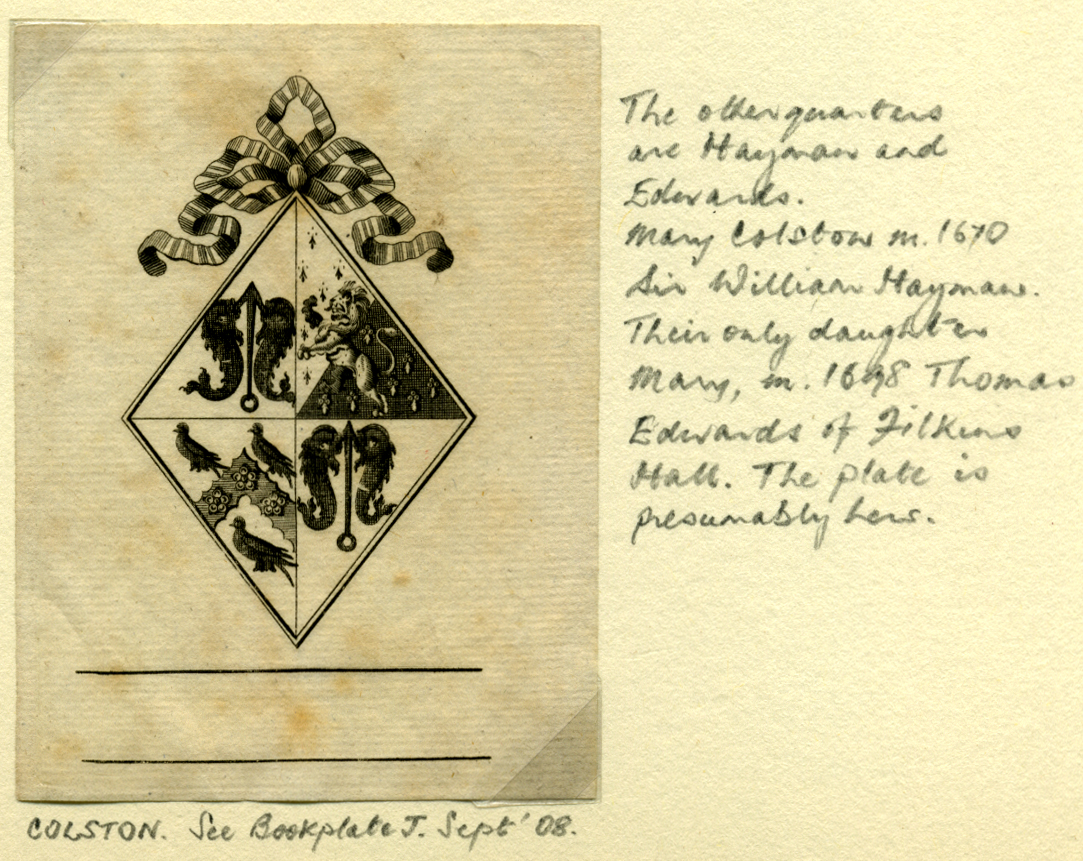 The other quarters
are Hayman and
Edwards.
Mary Colston m. 1670
Sir William Hayman.
Their only daughter
Mary, m. 1698 Thomas
Edwards of Filkins
Hall. The plate is
presumably hers.
COLSTON. See Bookplate J. Sept' 08.